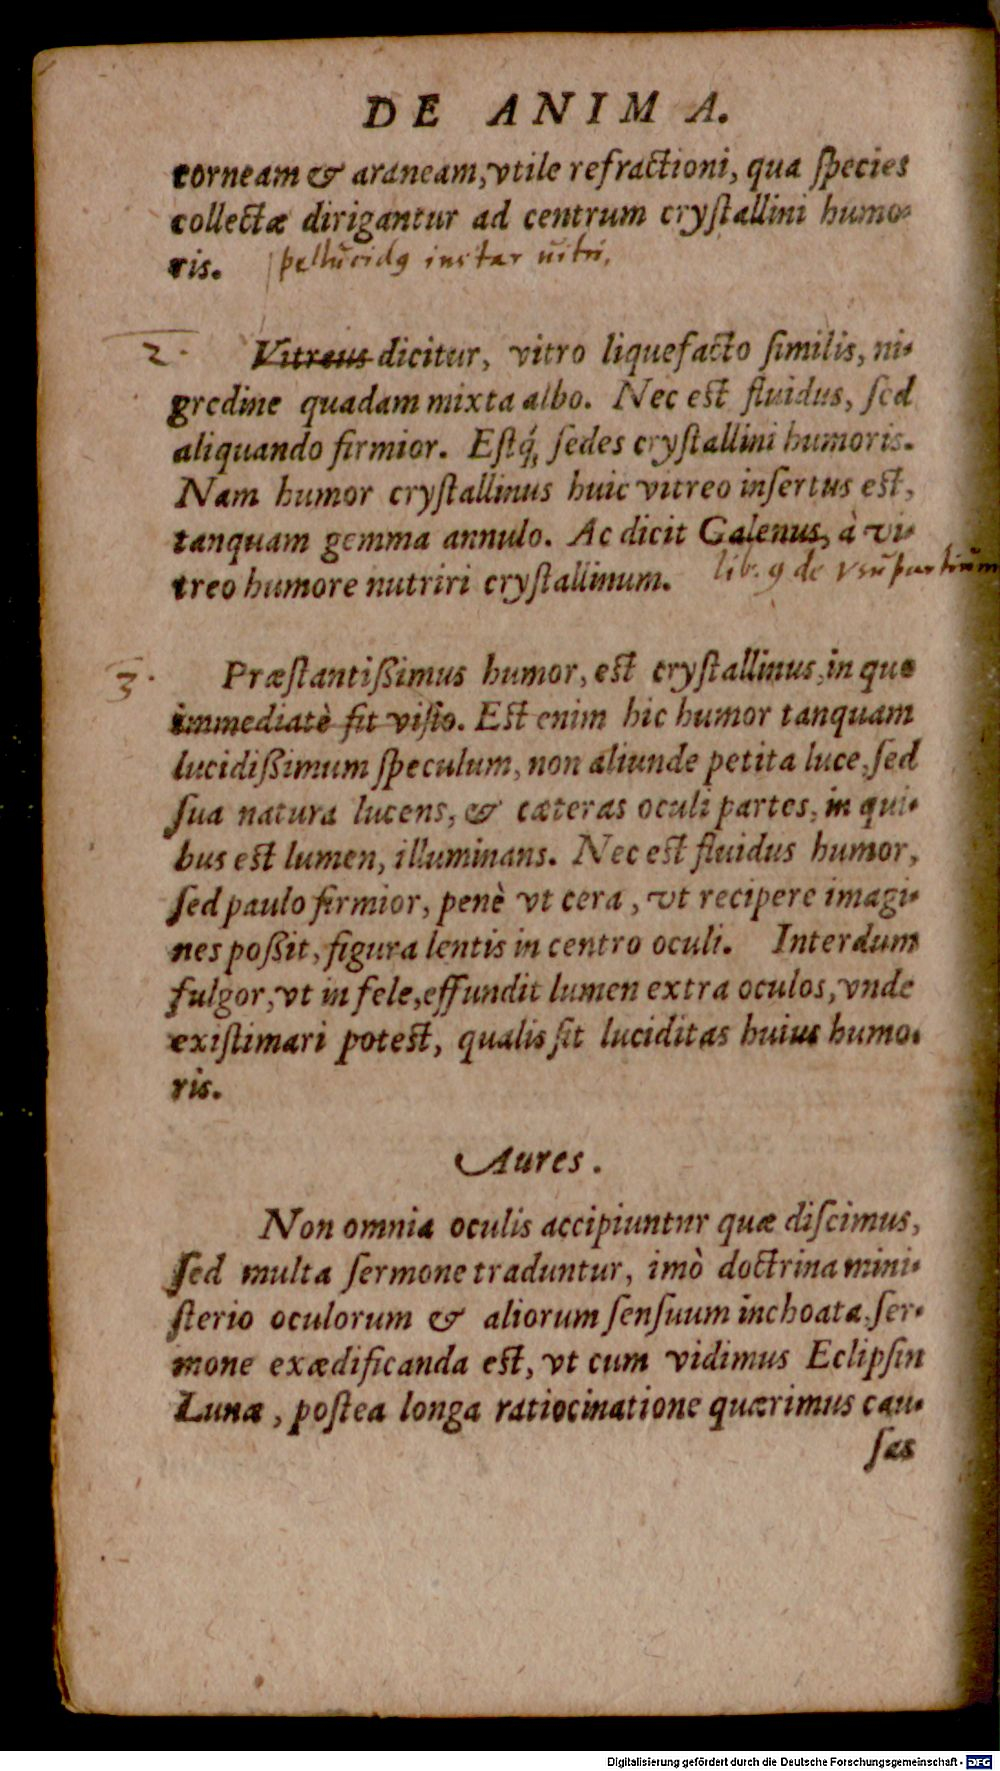 DE ANIMA.
corneam & araneam, vtile refractioni, qua ſpecies
collectæ dirigantur ad centrum cryſtallini humo-
ris. pellucidq instar uitri.
2. Vitreus dicitur, vitro liquefacto ſimilis, ni-
gredine quadam mixta albo. Nec est fluidus, ſed
aliquando firmior. Eſtq́; ſedes cryſtallini humoris.
Nam humor cryſtallinus huic vitreo inſertus est,
tanquam gemma annulo. Ac dicit Galenus, à vi-
treo humore nutriri cryſtallinum. lib. 9 de vsu partium
3. Præſtantißimus humor, est cryſtallinus, in quo
immediatè fit viſio. Est enim hic humor tanquam
lucidißimum ſpeculum, non aliunde petita luce, ſed
ſua natura lucens, & cæteras oculi partes, in qui-
bus est lumen, illuminans. Nec est fluidus humor,
ſed paulo firmior, penè vt cera, vt recipere imagi-
nes poßit, figura lentis in centro oculi. Interdum
fulgor, vt in fele, effundit lumen extra oculos, vnde
exiſtimari potest, qualis ſit luciditas huius humo-
ris.
Aures.
Non omnia oculis accipiuntur quæ diſcimus,
ſed multa ſermone traduntur, imò doctrina mini-
ſterio oculorum & aliorum ſenſuum inchoata, ſer-
mone exædificanda est, vt cum vidimus Eclipſin
Lunæ, poſtea longa ratiocinatione quærimus cau-
ſas
Digitalisierung gefördert durch die Deutsche Forschungsgemeinschaft - DFG